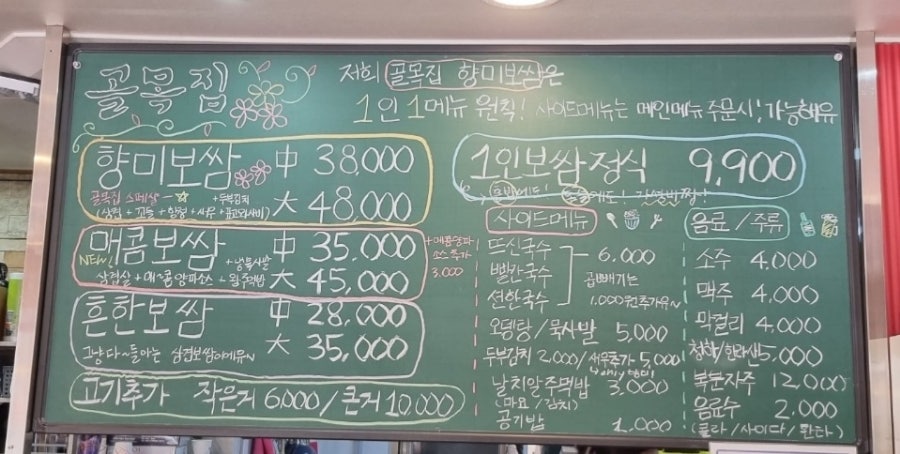 골목집
저희 골목집 향미보쌈은
1인 1메뉴 원칙! 사이드메뉴는 메인메뉴 주문시! 가능해유
향미보쌈 中 38,000
골목집 스페샬 +두부김치 大 48,000
매콤보쌈 中 35,000
NEW~! +냉묵사발 大 45,000
삼겹살 + 매~콤 양파소스 + 왕주먹밥
+매콤양파
소스추가
3,000
흔한보쌈 中 28,000
그냥 다~들아는 삼겹보쌈이에유~ 大 35,000
고기추가 작은거 6,000 / 큰거 10,000
1인보쌈정식 9,900
사이드메뉴
뜨신국수
빨간국수 6,000
션한국수 곱빼기는
1,000원추가유~
오뎅탕/묵사발 5,000
두부김치 2,000/새우추가 5,000
날치알주먹밥 3,000
(마요/김치)
공기밥 1,000
음료/주류
소주 4,000
맥주 4,000
막걸리 4,000
청하/한라산 5,000
복분자주 12,000
음료수 2,000
(콜라/사이다/환타)